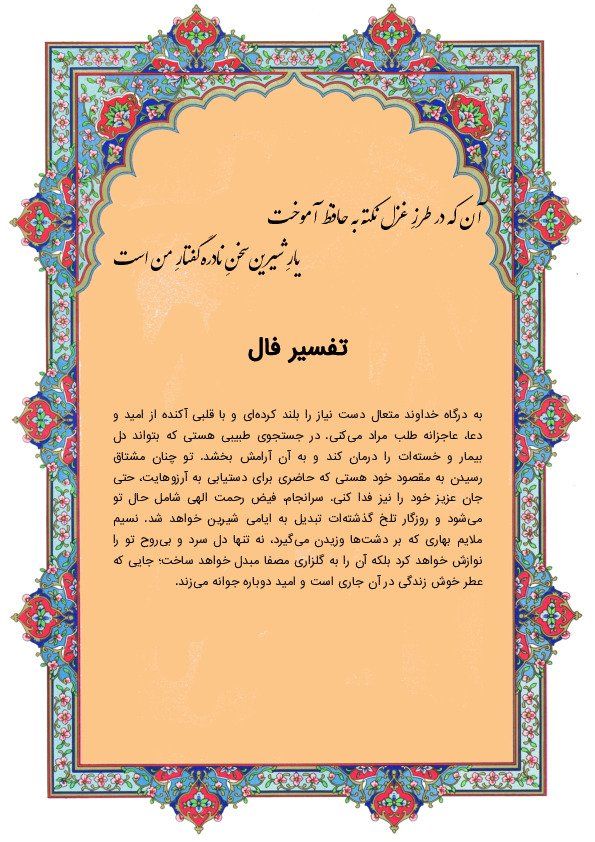 آن که در طرزِ غزل نکته به حافظ آموخت
یارِ شیرین سخنِ نادره گفتارِ من است
تفسیر فال
به درگاه خداوند متعال دست نیاز را بلند کرده‌ای و با قلبی آکنده از امید و
دعا، عاجزانه طلب مراد می‌کنی. در جستجوی طبیبی هستی که بتواند دل
بیمار و خسته‌ات را درمان کند و به آن آرامش بخشد. تو چنان مشتاق
رسیدن به مقصود خود هستی که حاضری برای دستیابی به آرزوهایت، حتی
جان عزیز خود را نیز فدا کنی. سرانجام، فیض رحمت الهی شامل حال تو
می‌شود و روزگار تلخ گذشته‌ات تبدیل به ایامی شیرین خواهد شد. نسیم
ملایم بهاری که بر دشت‌ها وزیدن می‌گیرد، نه تنها دل سرد و بی‌روح تو را
نوازش خواهد کرد بلکه آن را به گلزاری مصفا مبدل خواهد ساخت؛ جایی که
عطر خوش زندگی در آن جاری است و امید دوباره جوانه می‌زند.